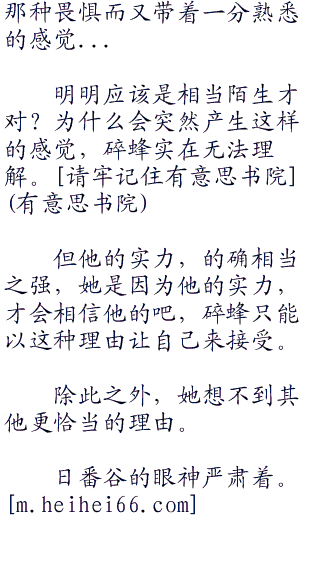 那种畏惧而又带着一分熟悉
的感觉...
明明应该是相当陌生才
对？为什么会突然产生这样
的感觉，碎蜂实在无法理
解。[请牢记住有意思书院]
(有意思书院)
但他的实力，的确相当
之强，她是因为他的实力，
才会相信他的吧，碎蜂只能
以这种理由让自己来接受。
除此之外，她想不到其
他更恰当的理由。
日番谷的眼神严肃着。
[m.heihei66.com]